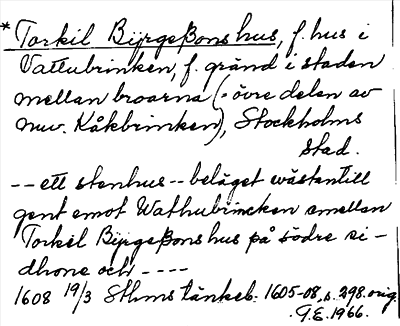 * Torkil Bijrgeßons hus, f. hus i
Vattubrinken, f. gränd i staden
mellan broarna (= övre delen av
nuv. Kåkbrinken), Stockholms
stad.
-- ett stenhus -- beläget wästantill
gent emot Wathubrincken emellan
Torkel Bijrgeßons hus på södre si-
dhone och ----
1608 19/3 Sthms tänkeb. 1605-08, s. 298. orig.
G.E. 1966.